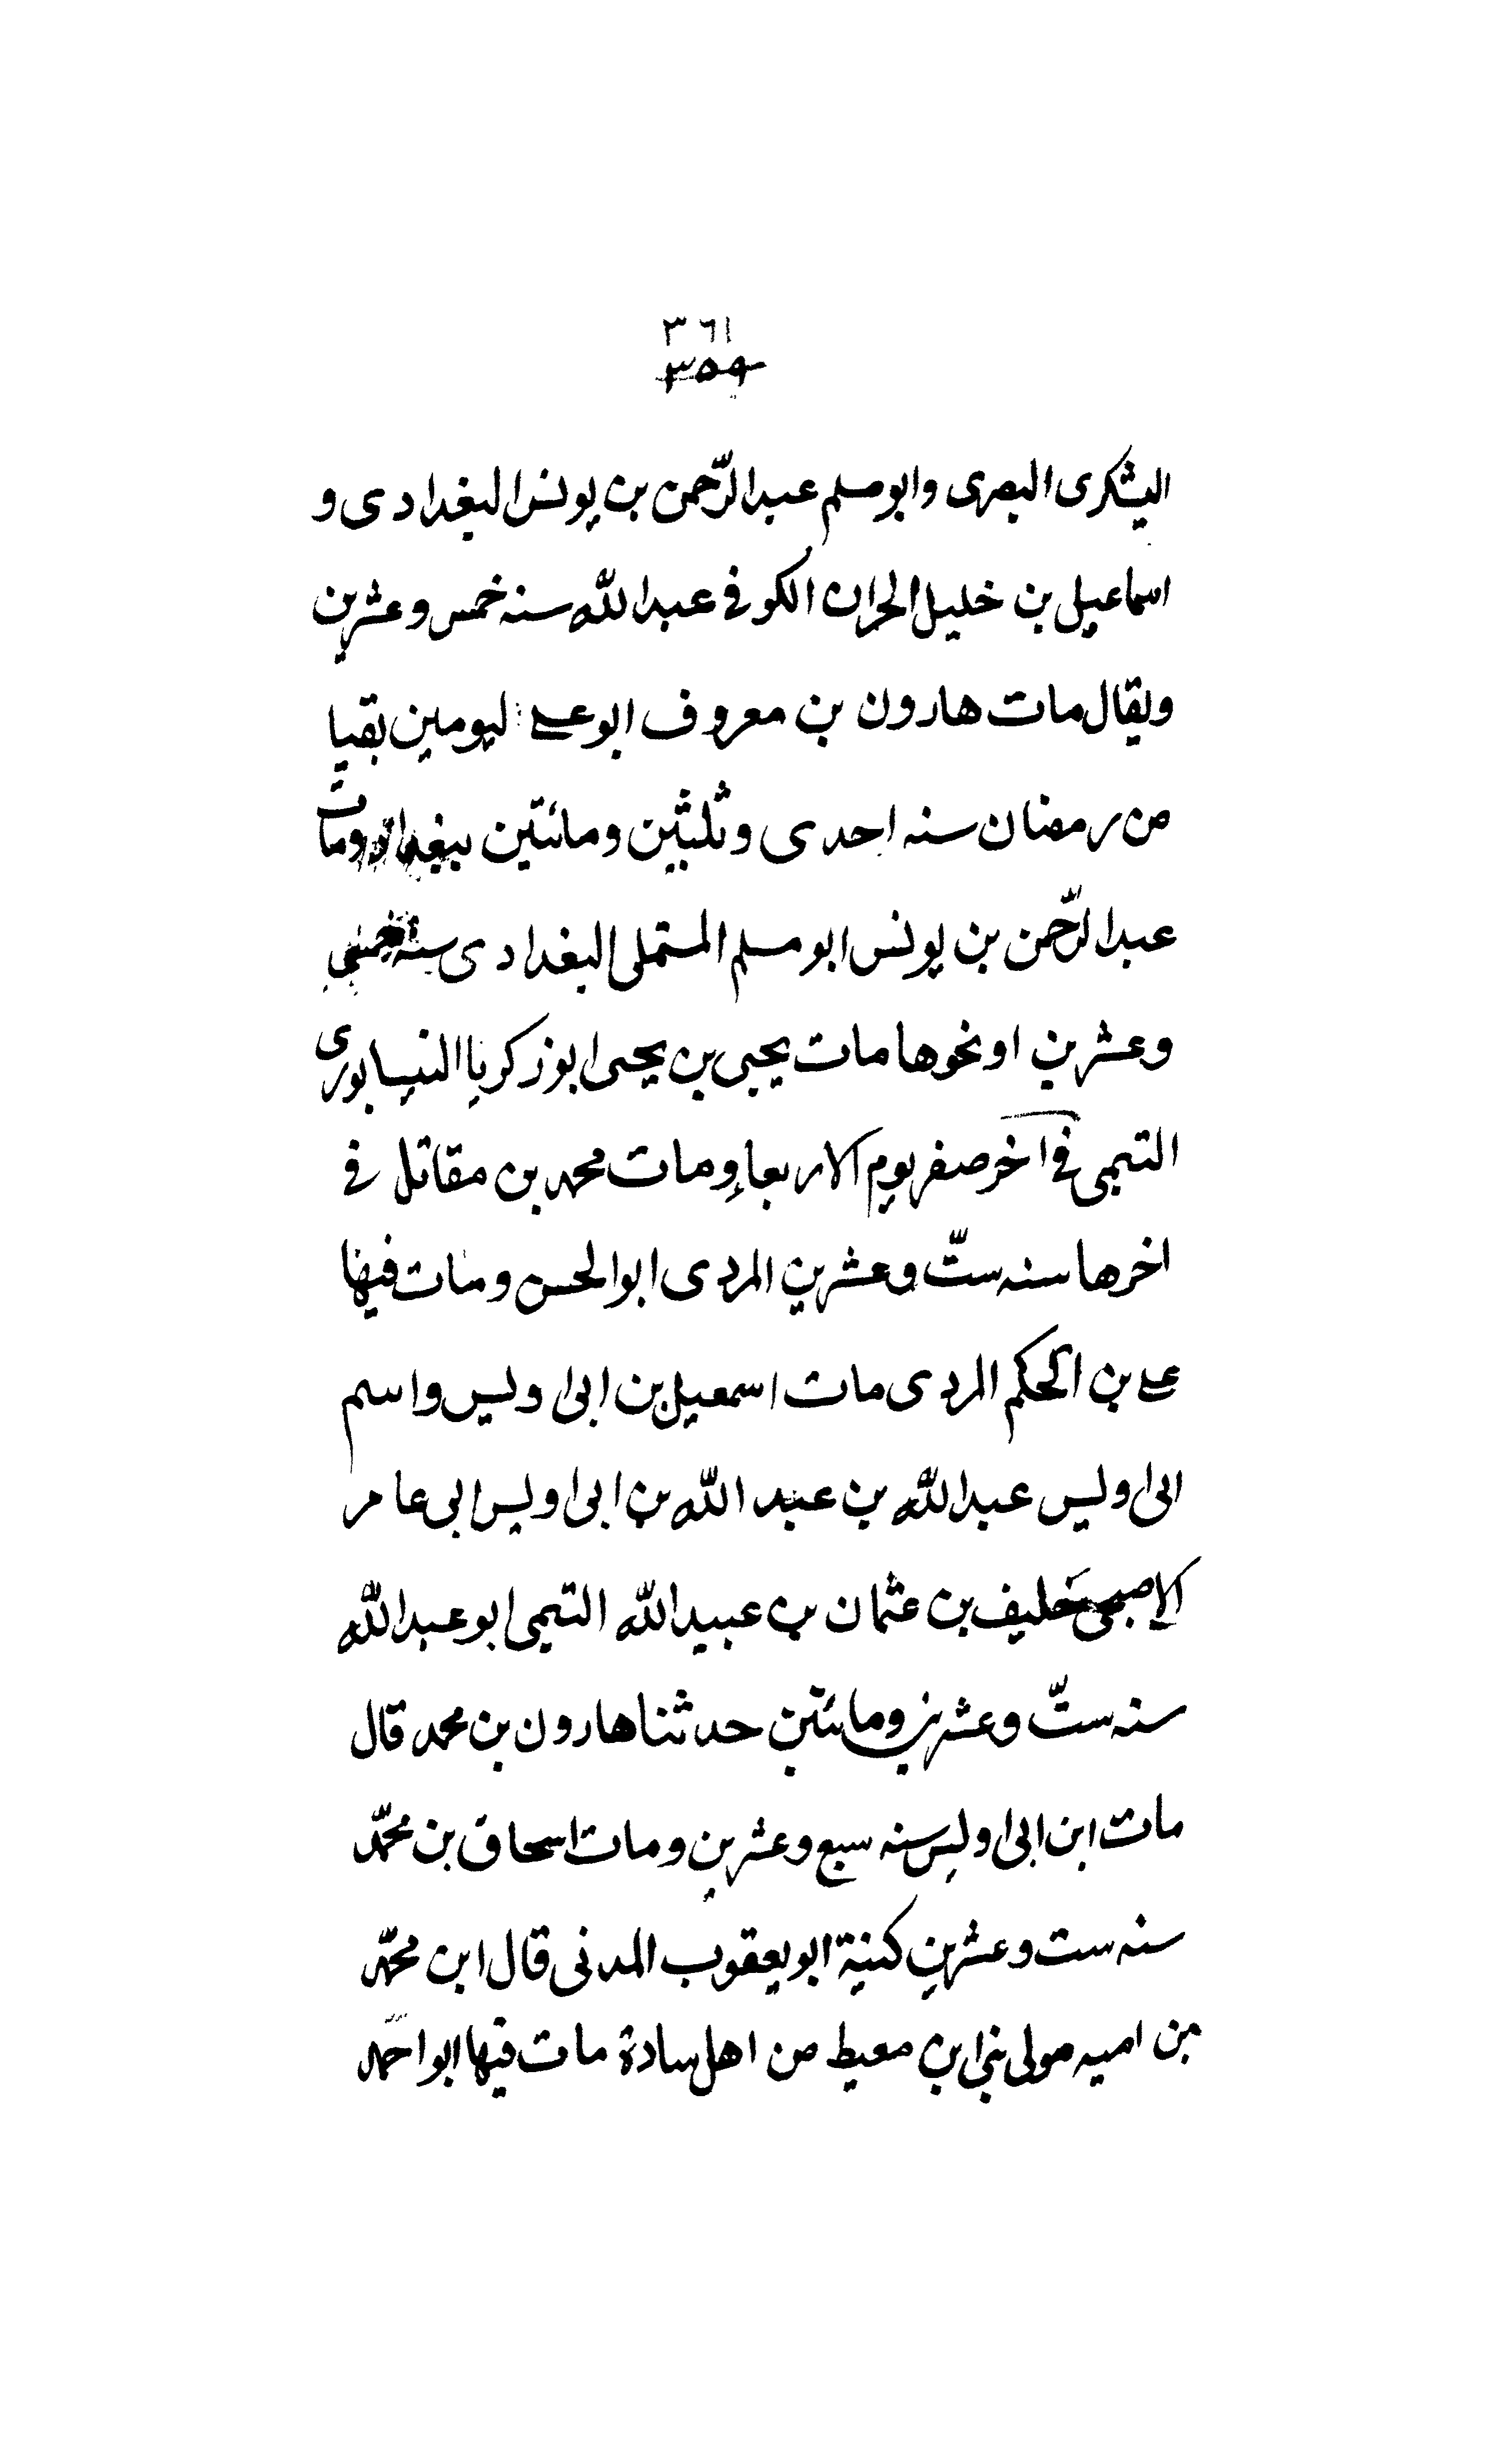 ٣٦١
٣٥٩
اليشكرى البصرى وابو مسلم عبد الرّحمن بن يونس البغدادى و
اسماعيل بن خليل الحزان الكوفى عبد الله سنه خمس وعشرين
ويقال مات هارون بن معروف ابو على ليومين بقيا
من رمضان سنه احدى وثلثين ومائتين ببغداد ومات
عبد الرّحمن بن يونس ابو مسلم المستملى البغدادى سنة خمس
وعشرين او نحوها مات يحيى بن يحيى ابو زكريا النيسابورى
التميمى فى آخر صفر يوم الاربعاء ومات محمد بن مقاتل فى
اخرها سنه ستّ وعشرين المروزى ابو الحسن ومات فيها
على بن الحكم المروزى مات اسمعيل بن ابى اويس واسم
ابى اويس عبد الله بن عبد الله بن ابى اويس ابى عامر
الاصبحى حليف بن عثمان بن عبيد الله التيمى ابو عبد الله
سنه ستّ وعشرين ومائتين حدثنا هارون بن محمد قال
مات ابن ابى اويس سنه سبع وعشرين ومات اسحاق بن محمّد
سنه ست وعشرين كنية ابو يعقوب المدنى قال ابن محمّد
من اميه مولى بنى ابن معيط من اهل سادة مات فيها ابو احمد